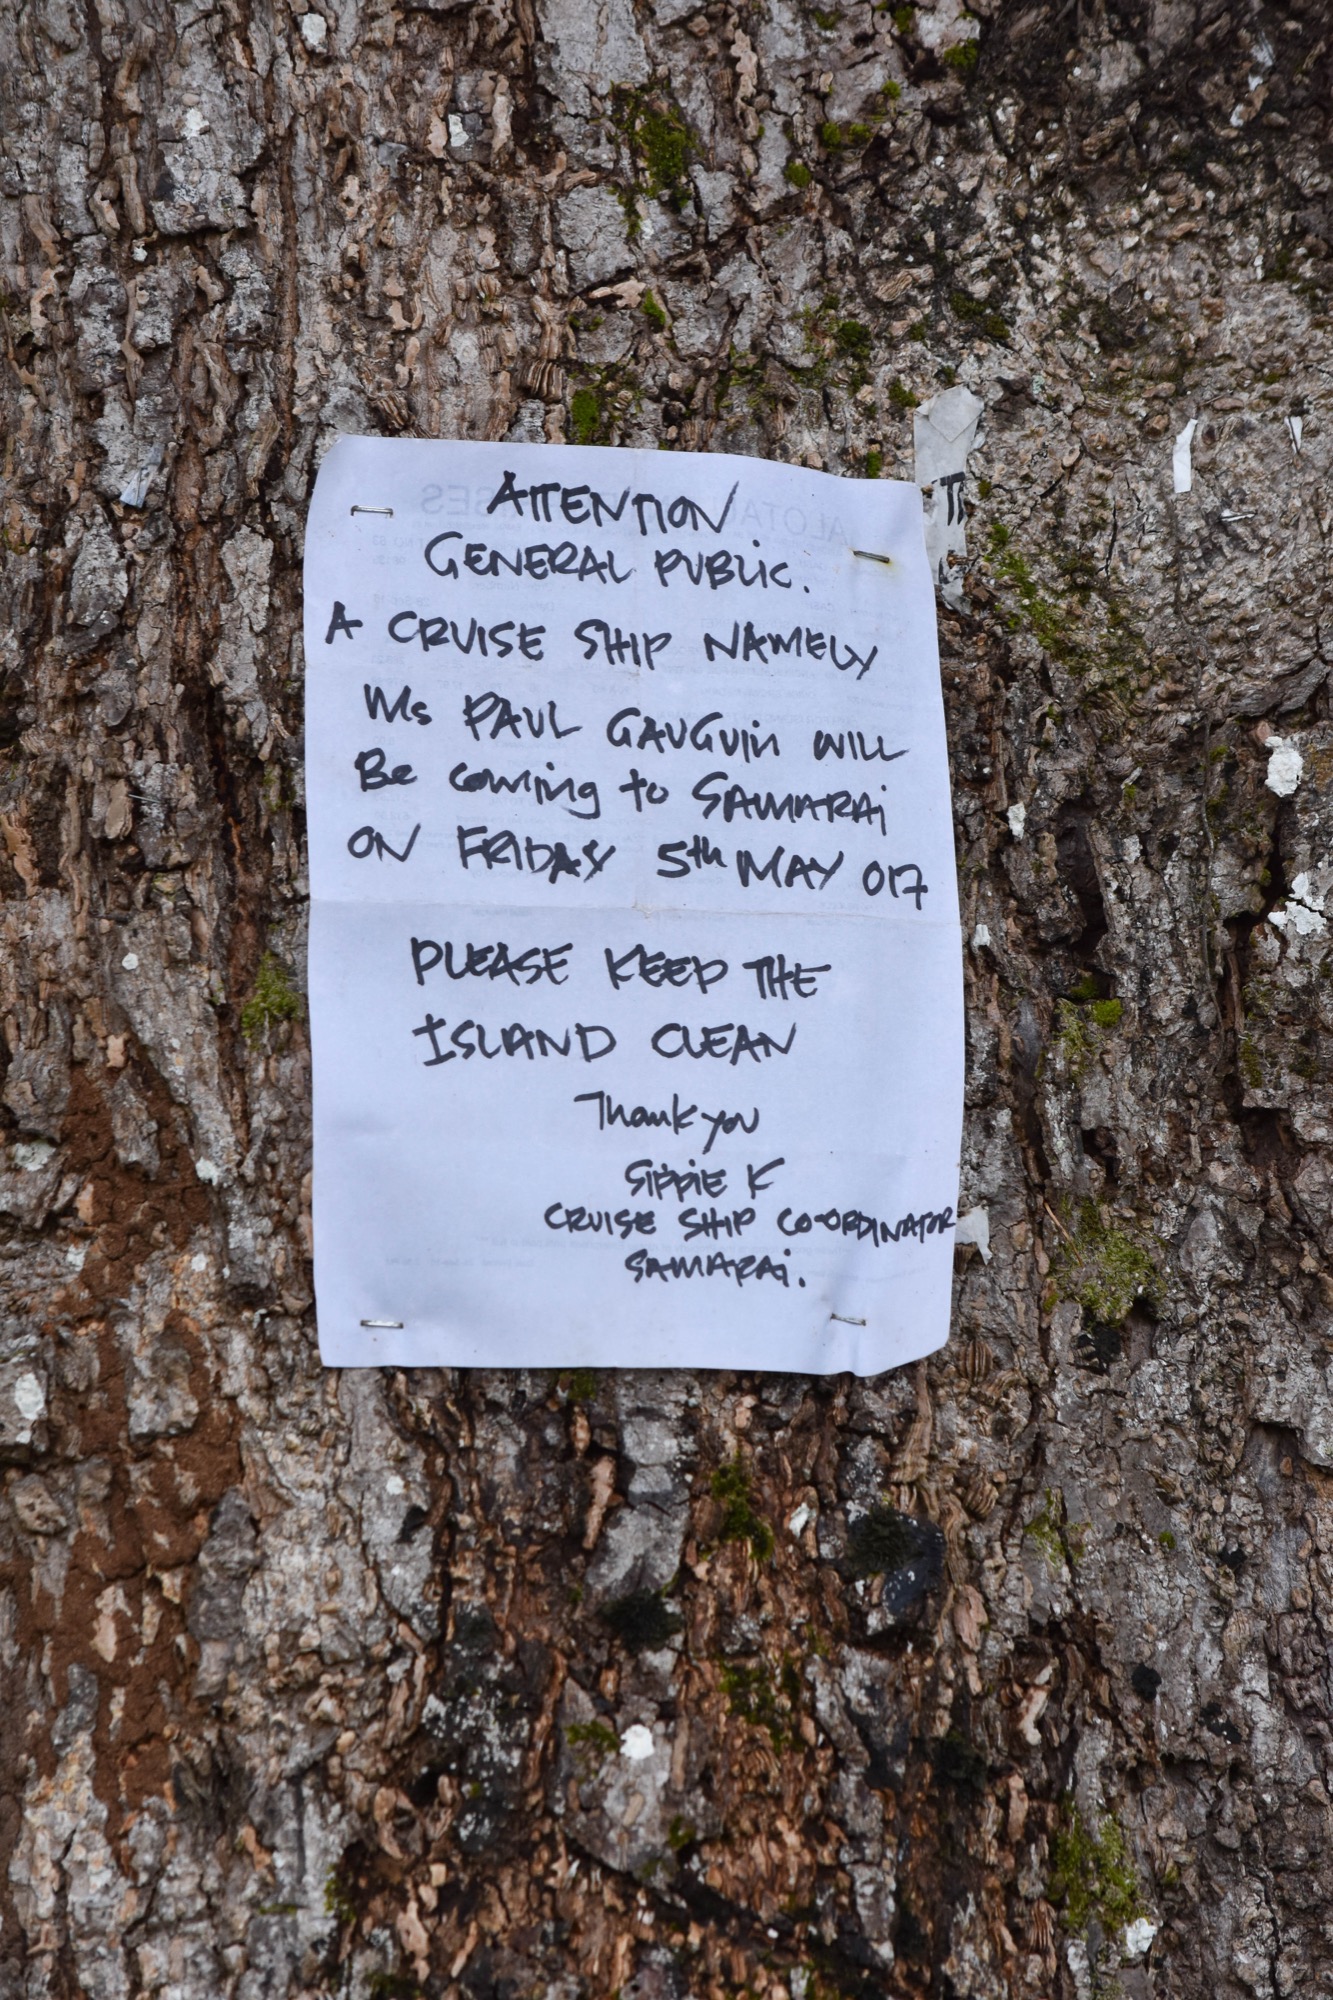 ATTENTION
GENERAL PUBLIC.
A CRUISE SHIP NAMELY
Ms PAUL GAUGUiN WILL
Be coming to SAMARAi
ON FRIDAY 5th MAY 017
PLEASE KEEP THE
ISLAND CLEAN
Thank you
SiPPiE K
CRUISE SHIP CO-ORDINATOR
SAMARAi.